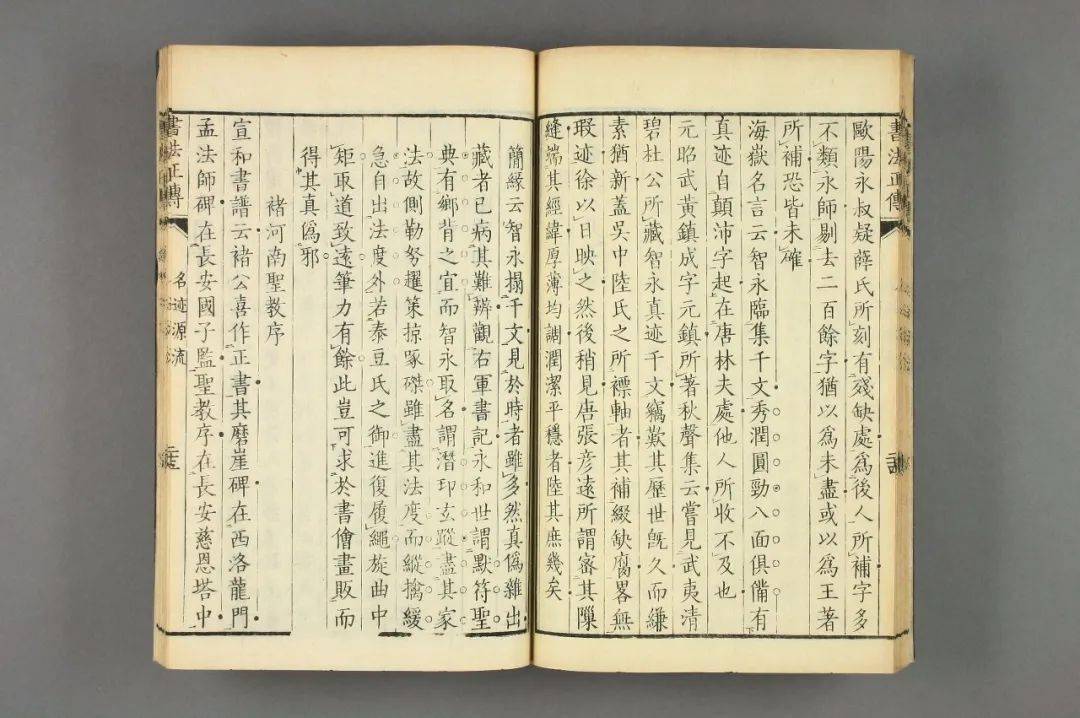 歐陽永叔疑薛氏所刻有殘缺處爲後人所補字多
不類永師剔去二百餘字猶以爲未盡或以爲王著
所補恐皆未確
海嶽名言云智永臨集千文秀潤圓勁八面俱備有
真迹自顛沛字起在唐林夫處他人所收不及也
元昭武黃鎮成字元鎮所著秋聲集云嘗見武夷清
碧杜公所藏智永真迹千文竊歎其歷世旣久而縑
素猶新蓋吳中陸氏之所褾軸者其補綴缺腐畧無
瑕迹徐以日映之然後稍見唐張彥遠所謂密其隟
縫端其經緯厚薄均調潤潔平穩者陸其庶幾矣
簡緣云智永搨千文見於時者雖多然真僞雜出
藏者已病其難辨觀右軍書記永和世謂默符聖
典有鄉背之宜而智永取名謂潛印玄蹤盡其家
法故側勒努趯策掠啄磔雖盡其法度而縱擒緩
急自出法度外若泰豆氏之御進復履繩旋曲中
矩取道致遠筆力有餘此豈可求於書儈畫販而
得其真僞邪
褚河南聖教序
宣和書譜云褚公喜作正書其磨崖碑在西洛龍門
孟法師碑在長安國子監聖教序在長安慈恩塔中
書法正傳
名迹源流
書法正傳